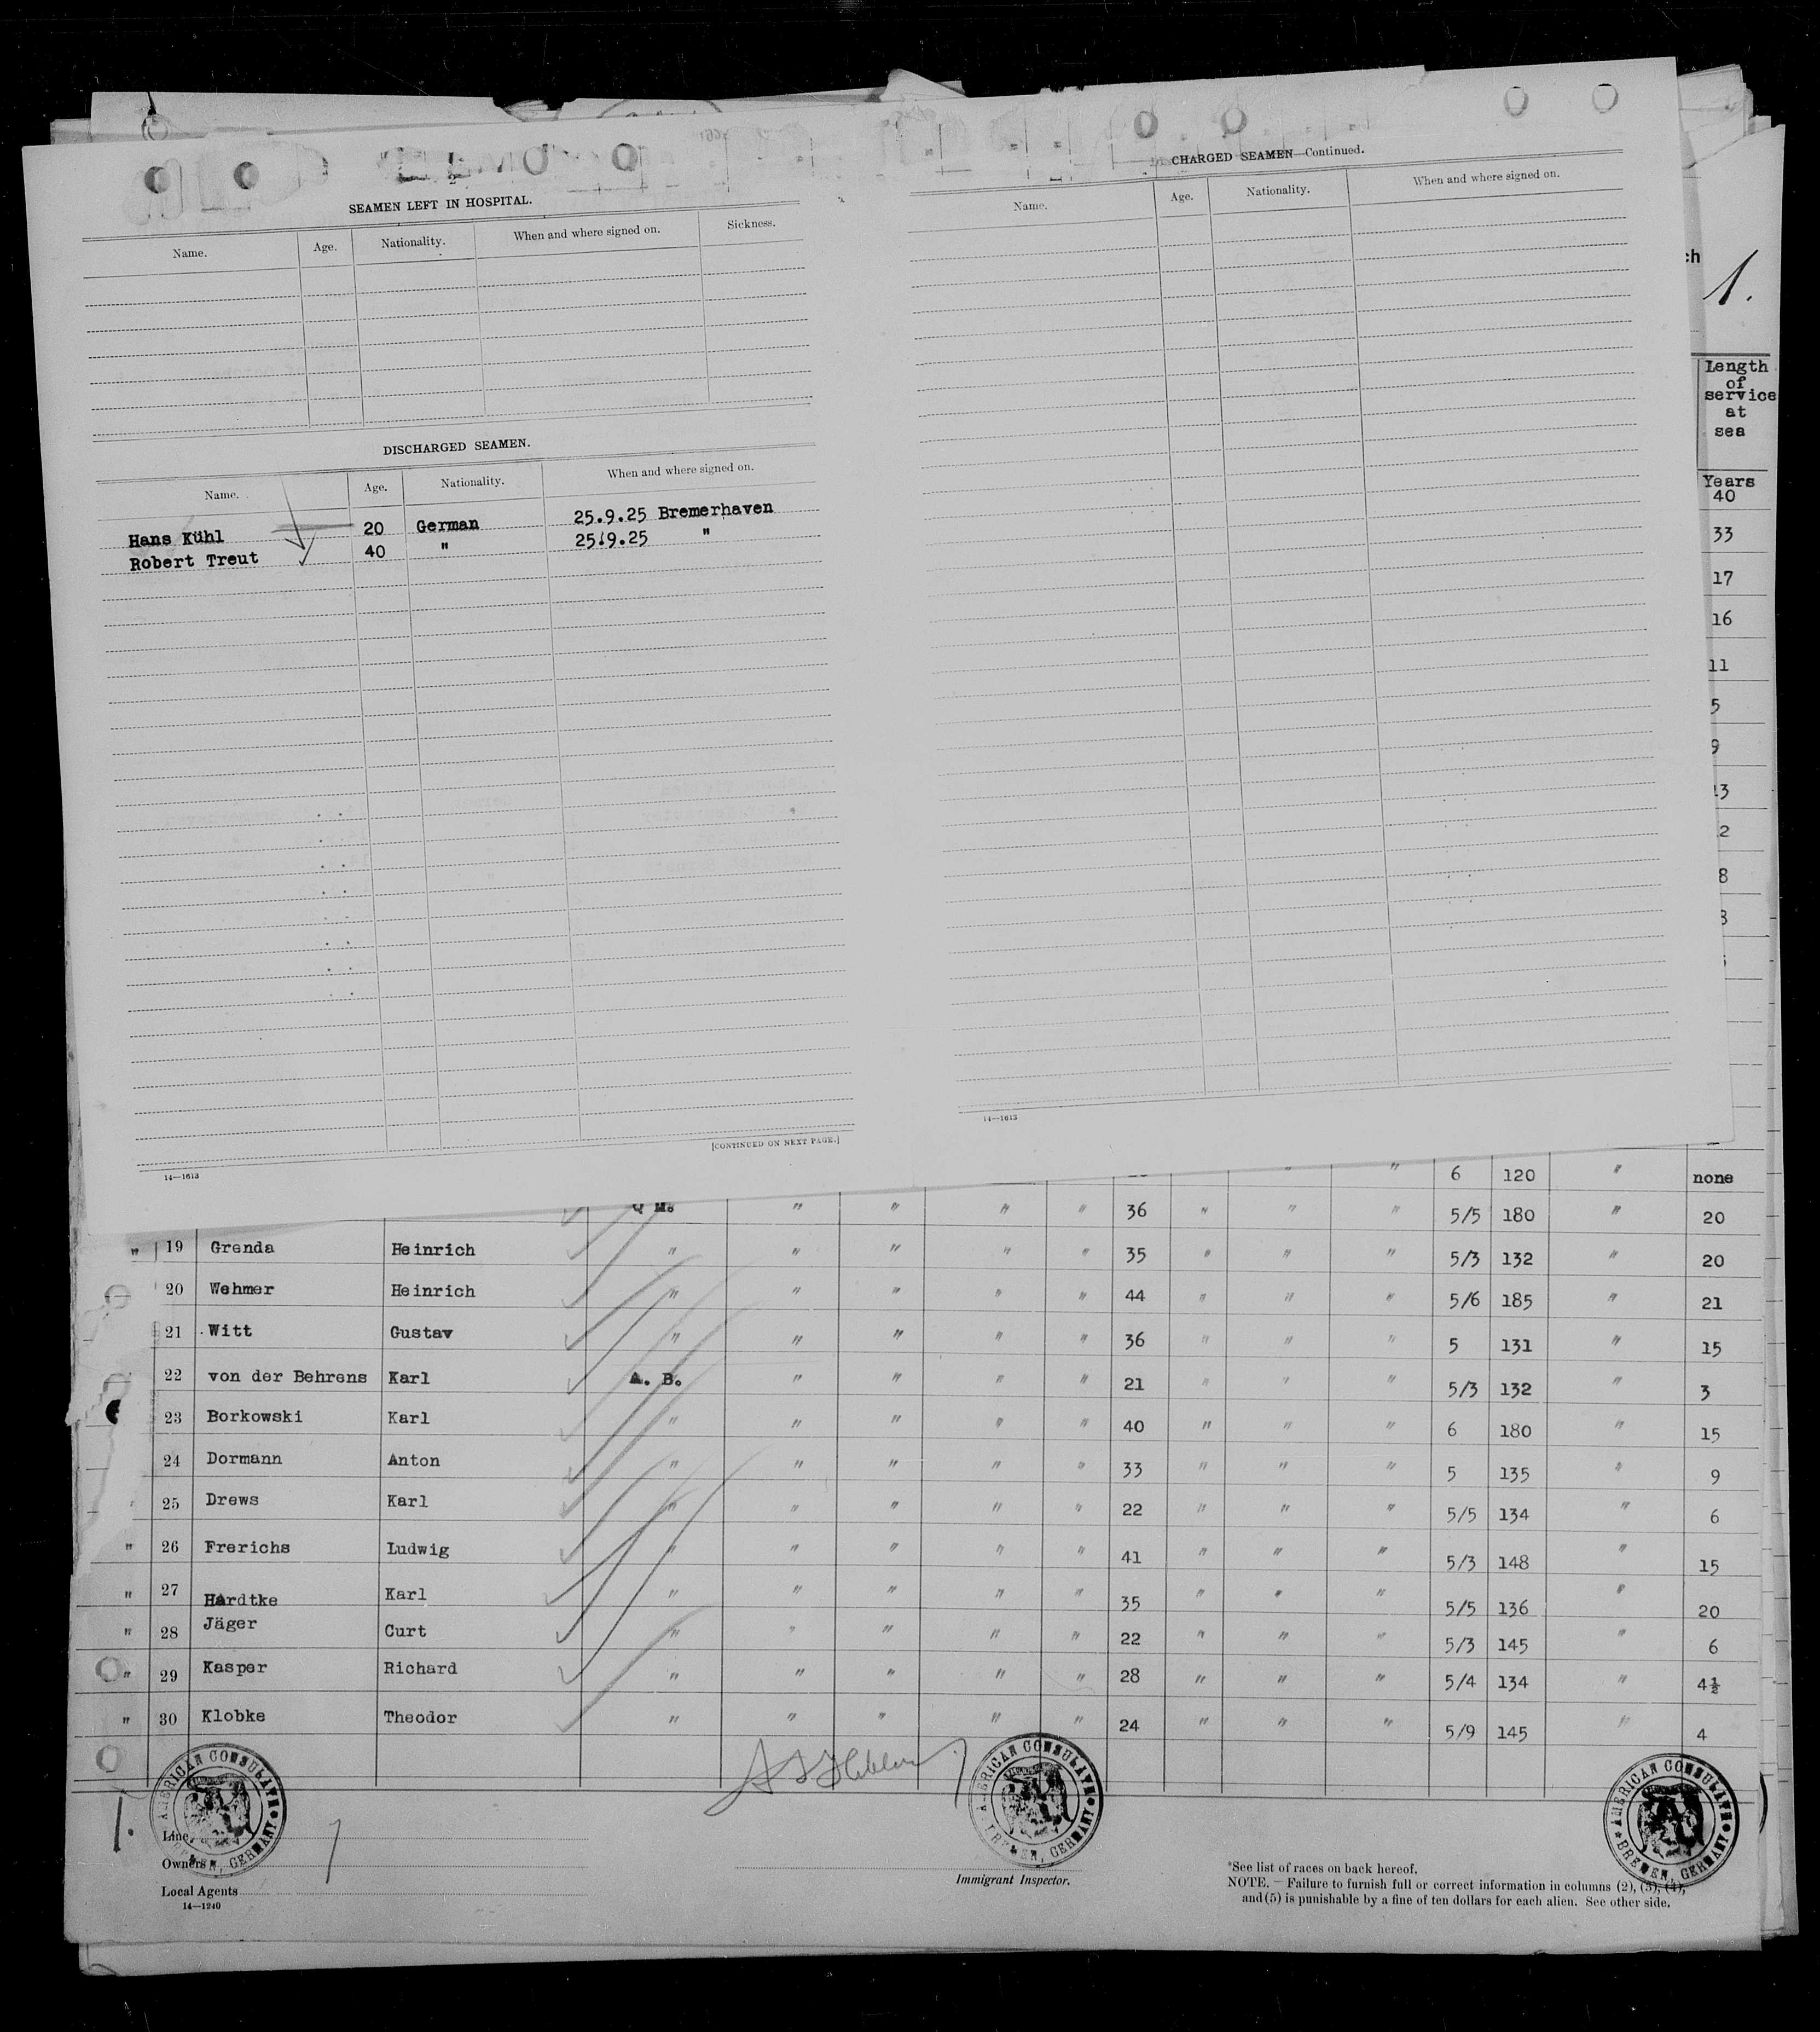 2
SEAMEN LEFT IN HOSPITAL.
Name. Age. Nationality. When and where signed on. Sickness.
DISCHARGED SEAMEN.
Name. Age. Nationality. When and where signed on.
Hans Kühl 20 German 25.9.25 Bremerhaven
Robert Treut 40 " 25.9.25 "
[CONTINUED ON NEXT PAGE.]
14—1613
CHARGED SEAMEN—Continued.
Name. Age. Nationality. When and where signed on.
14—1613
ch
1.
Length
of
service
at
sea
Years
40
33
17
16
11
5
9
13
2
8
3
" " 6 120 " none
Q M. " " " " 36 " " " 5/5 180 " 20
" 19 Grenda Heinrich " " " " " 35 " " " 5/3 132 " 20
20 Wehmer Heinrich " " " " " 44 " " " 5/6 185 " 21
21 Witt Gustav " " " " " 36 " " " 5 131 " 15
22 von der Behrens Karl A. B. " " " " 21 " " " 5/3 132 " 3
23 Borkowski Karl " " " " " 40 " " " 6 180 " 15
24 Dormann Anton " " " " " 33 " " " 5 135 " 9
25 Drews Karl " " " " " 22 " " " 5/5 134 " 6
" 26 Frerichs Ludwig " " " " " 41 " " " 5/3 148 " 15
" 27 Hardtke Karl " " " " " 35 " " " 5/5 136 " 20
" 28 Jäger Curt " " " " " 22 " " " 5/3 145 " 6
" 29 Kasper Richard " " " " " 28 " " " 5/4 134 " 4½
" 30 Klobke Theodor " " " " " 24 " " " 5/9 145 " 4
AMERICAN CONSULATE BREMEN, GERMANY
AMERICAN CONSULATE BREMEN, GERMANY
AMERICAN CONSULATE BREMEN, GERMANY
1.
Line
Owners
Local Agents
14—1240
Immigrant Inspector.
*See list of races on back hereof.
NOTE. — Failure to furnish full or correct information in columns (2), (3), (4),
and (5) is punishable by a fine of ten dollars for each alien. See other side.